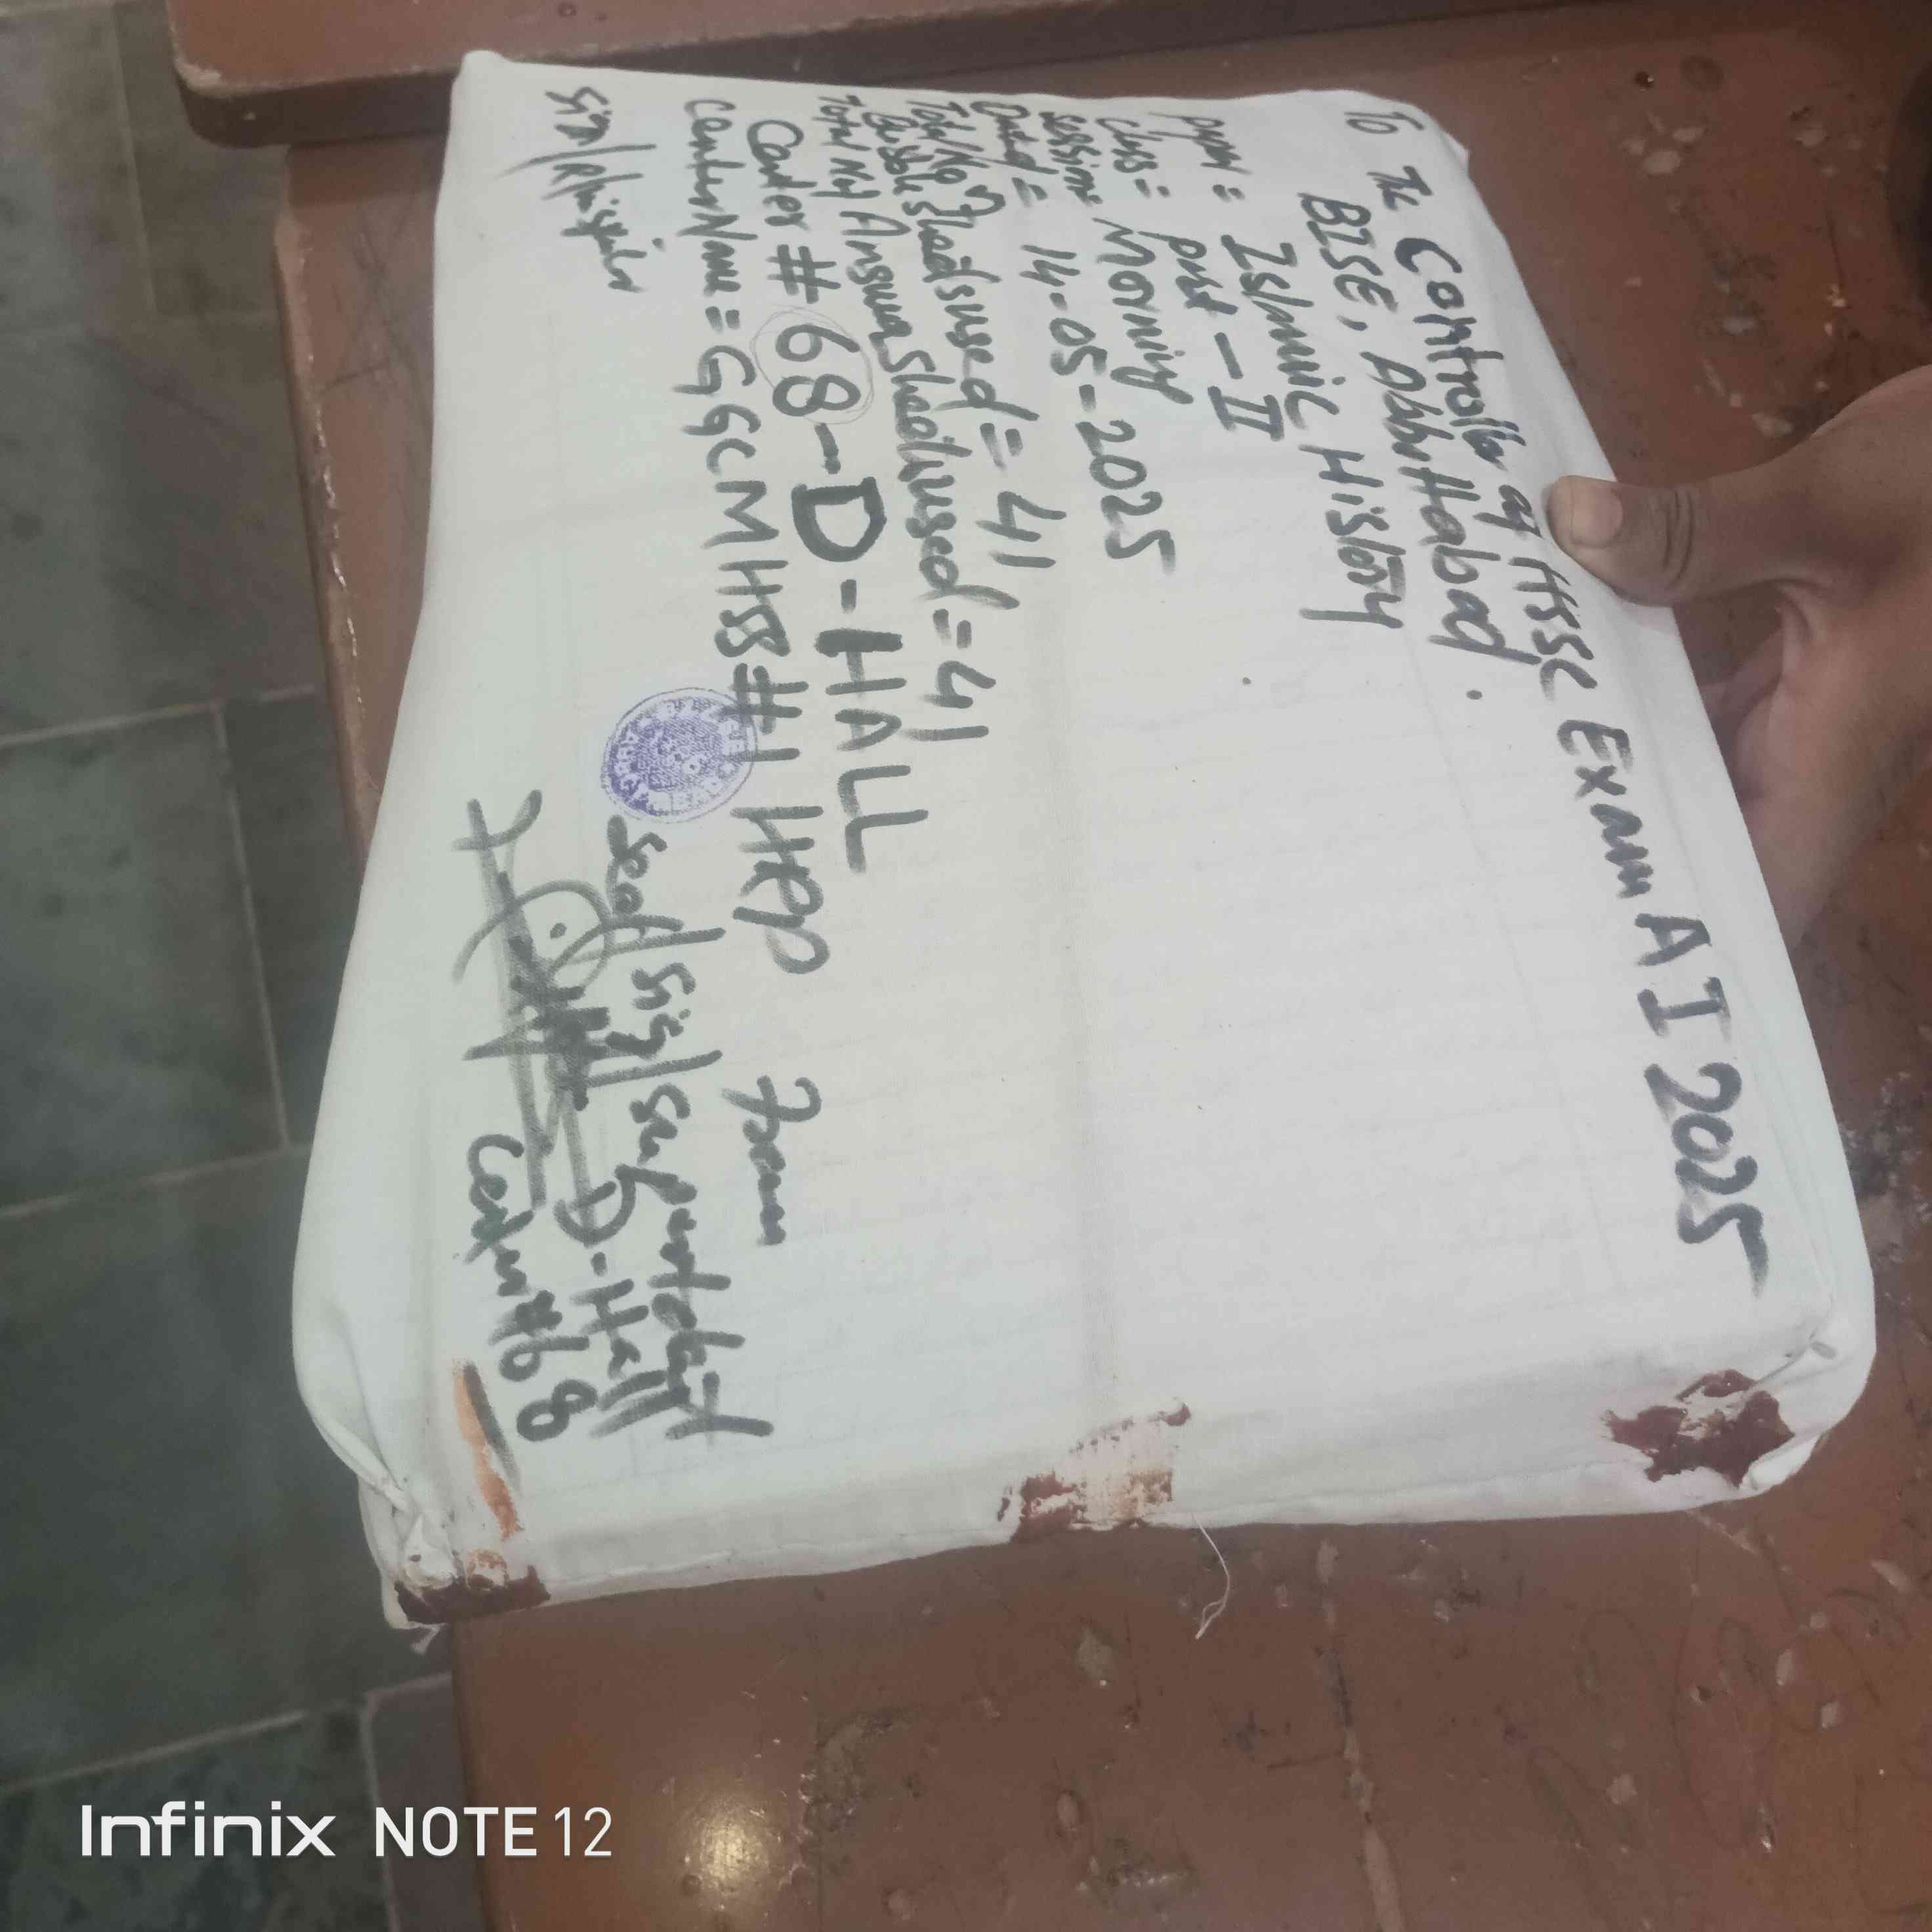 To The Controller of HSSC Exam A I 2025
BISE, AbbttAbad.
Islamic History
Class = Part - II
Session. Morning
Dated = 14-05-2025
Total No of used = 41
Bubble
Total No of Answer used = 41
Center # 68-D-HALL
Center Name = GGCMHSS#1 HRP
From
Seal/Sig/
D-Hall
Center#68
Infinix NOTE 12